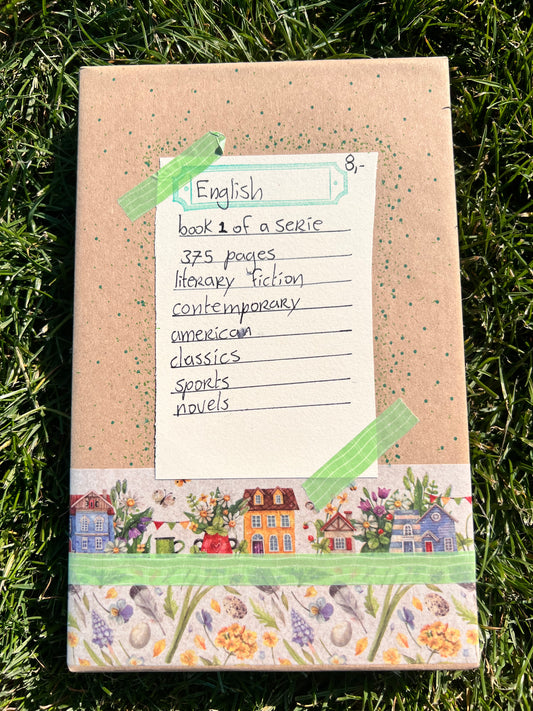 8,-
English
book 1 of a serie
375 pages
literary fiction
contemporary
american
classics
sports
novels